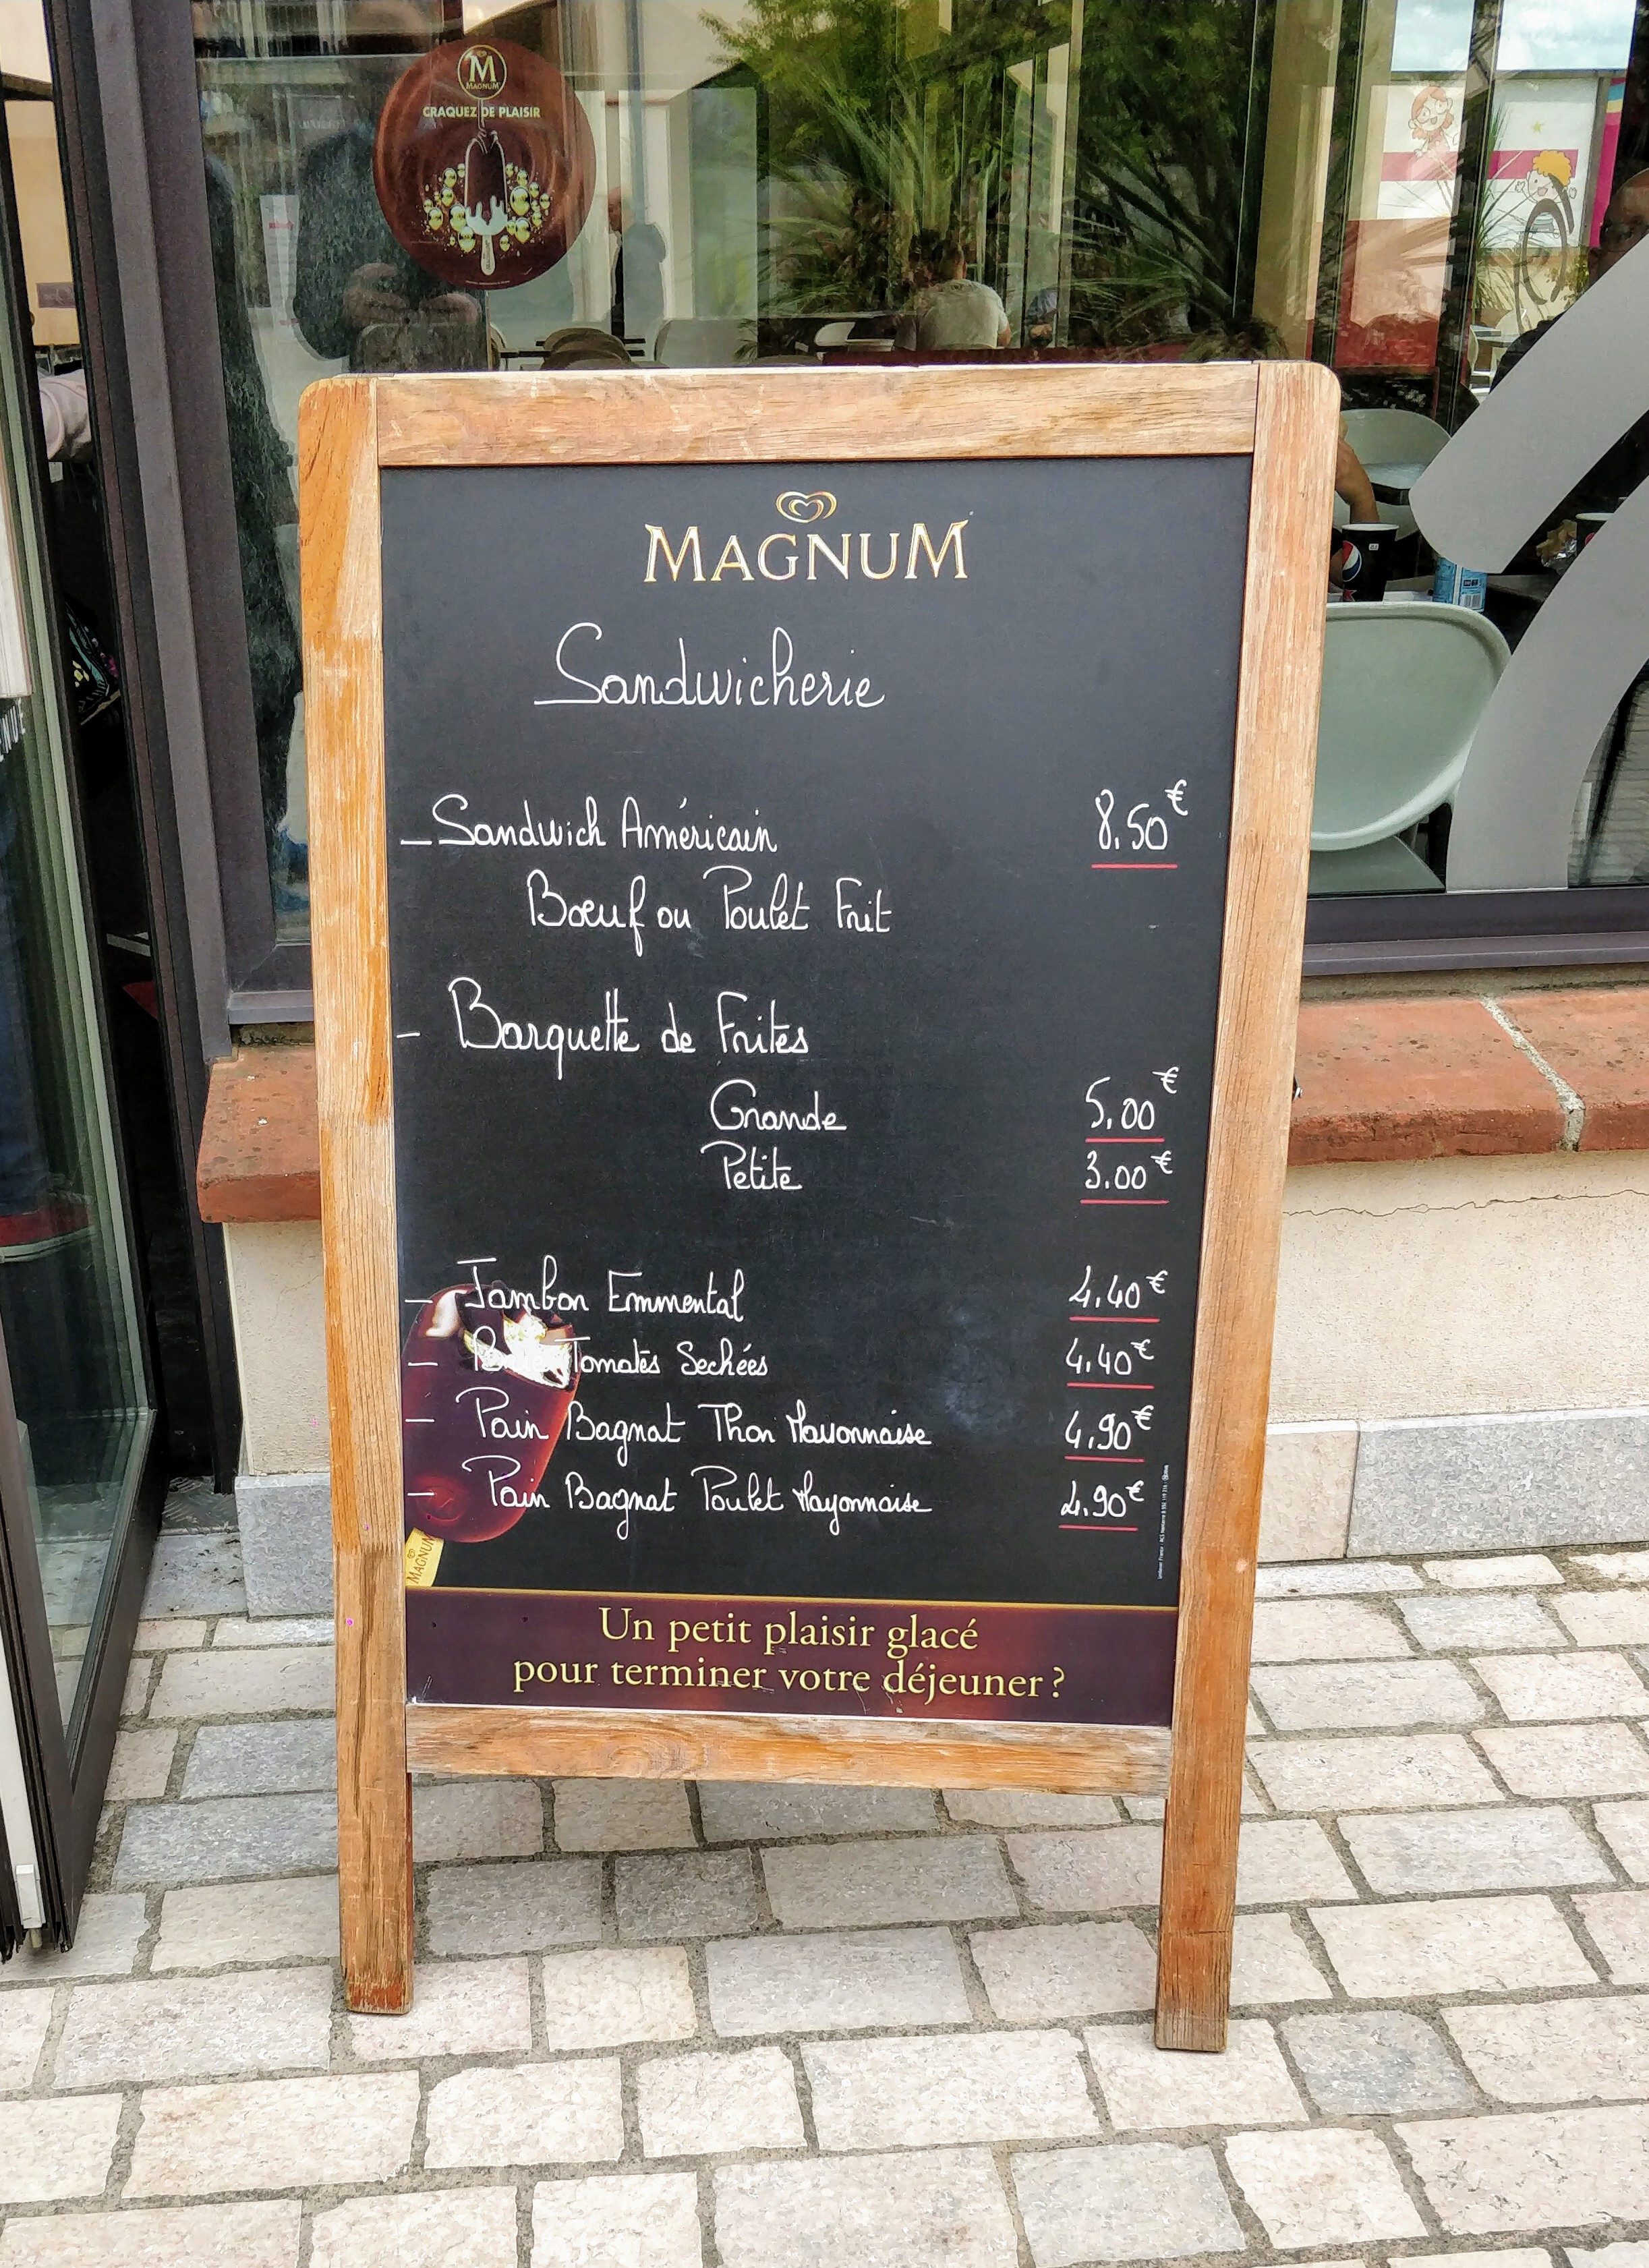 M
MAGNUM
CRAQUEZ DE PLAISIR
MAGNUM
Sandwicherie
- Sandwich Américain 8.50€
Bœuf ou Poulet Frit
- Barquette de Frites
Grande 5.00€
Petite 3.00€
- Jambon Emmental 4.40€
- Tomates Sechées 4.40€
- Pain Bagnat Thon Mayonnaise 4.90€
- Pain Bagnat Poulet Mayonnaise 4.90€
MAGNUM
Un petit plaisir glacé
pour terminer votre déjeuner ?